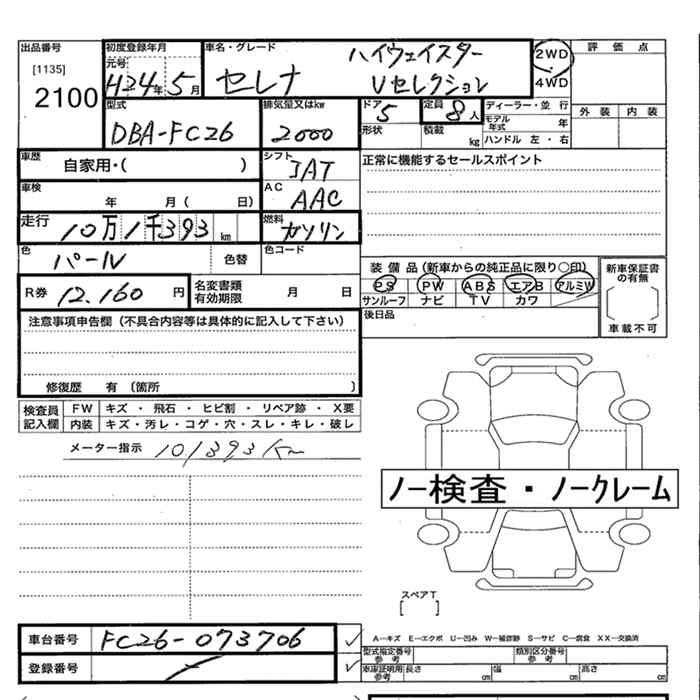 出品番号 初度登録年月 車名・グレード 評価点
元号 ハイウェイスター 2WD
[1135] H24年5月 セレナ Vセレクション 4WD
2100 型式 排気量又はkw ドア 5 定員 8人 ディーラー・並行 外装 内装
モデル年式 年
DBA-FC26 2000 形状 積載 kg ハンドル 左・右
車歴 自家用・( ) シフト IAT 正常に機能するセールスポイント
車検 年 月( 日) AC AAC
走行 10万1千393km 燃料 ガソリン
色 パール 色替 色コード
装備品(新車からの純正品に限り○印) 新車保証書の有無
R券 12,160円 名変書類有効期限 月 日 PS PW ABS エアB アルミW
サンルーフ ナビ TV カワ
注意事項申告欄(不具合内容等は具体的に記入して下さい) 後日品 車載不可
修復歴 有〔箇所 〕
検査員記入欄 FW キズ・飛石・ヒビ割・リペア跡・X要
内装 キズ・汚レ・コゲ・穴・スレ・キレ・破レ
メーター指示 101393km
ノー検査・ノークレーム
スペアT
[ ]
車台番号 FC26-073706 ✓
A—キズ E—エクボ U—凹み W—補修跡 S—サビ C—腐食 XX—交換済
登録番号 ✓ 型式指定番号 参考 類別区分番号 参考
車庫証明用 参考 長さ cm 幅 cm 高さ cm